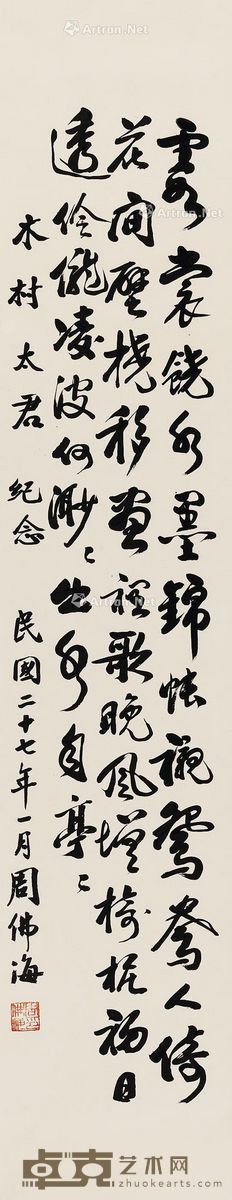 Artron.Net
雲裳饒水墨錦帳襯鴛鴦人倚
花間壁橈移畫裡歌晚風增旖旎初日
透凌波何渺〻出水自亭〻
木村太君 紀念 民國二十七年一月周佛海
卓克艺术网
zhuokearts.com